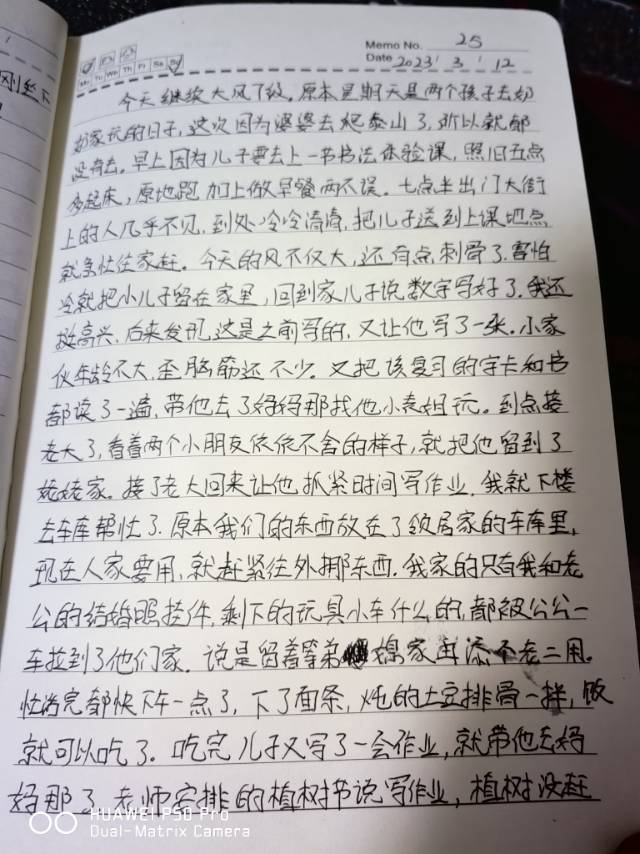 Memo No. 25
Mo Tu We Th Fr Sa Su
Date 2023 / 3 / 12
刚坐下
今天继续大风下级。原本星期天是两个孩子去奶
奶家玩的日子,这次因为婆婆去爬泰山了,所以就都
没有去。早上因为儿子要去上一节书法体验课,照旧五点
多起床,原地跑加上做早餐两不误。七点半出门大街
上的人几乎不见,到处冷冷清清,把儿子送到上课地点
就急忙往家赶。今天的风不仅大,还有点刺骨了.害怕
冷就把小儿子留在家里,回到家儿子说数字写好了.我还
挺高兴,后来发现这是之前写的,又让他写了一张.小家
伙年龄不大,歪脑筋还不少。又把该复习的字卡和书
都读了一遍,带他去了妈妈那找他小表姐玩。到点接
老大了,看着两个小朋友依依不舍的样子,就把他留到了
姥姥家。接了老大回来让他抓紧时间写作业,我就下楼
去车库帮忙了.原本我们的东西放在了邻居家的车库里,
现在人家要用,就赶紧往外挪东西.我家的只有我和老
公的结婚照挂件,剩下的玩具小车什么的,都被公公一
车拉到了他们家.说是留着等弟媳家再添个老二用。
忙活完都快下午一点了,下了面条,炖的土豆排骨一拌,饭
就可以吃了.吃完儿子又写了一会作业,就带他去妈
妈那了.老师安排的植树节说写作业,植树没赶
HUAWEI P50 Pro
Dual-Matrix Camera